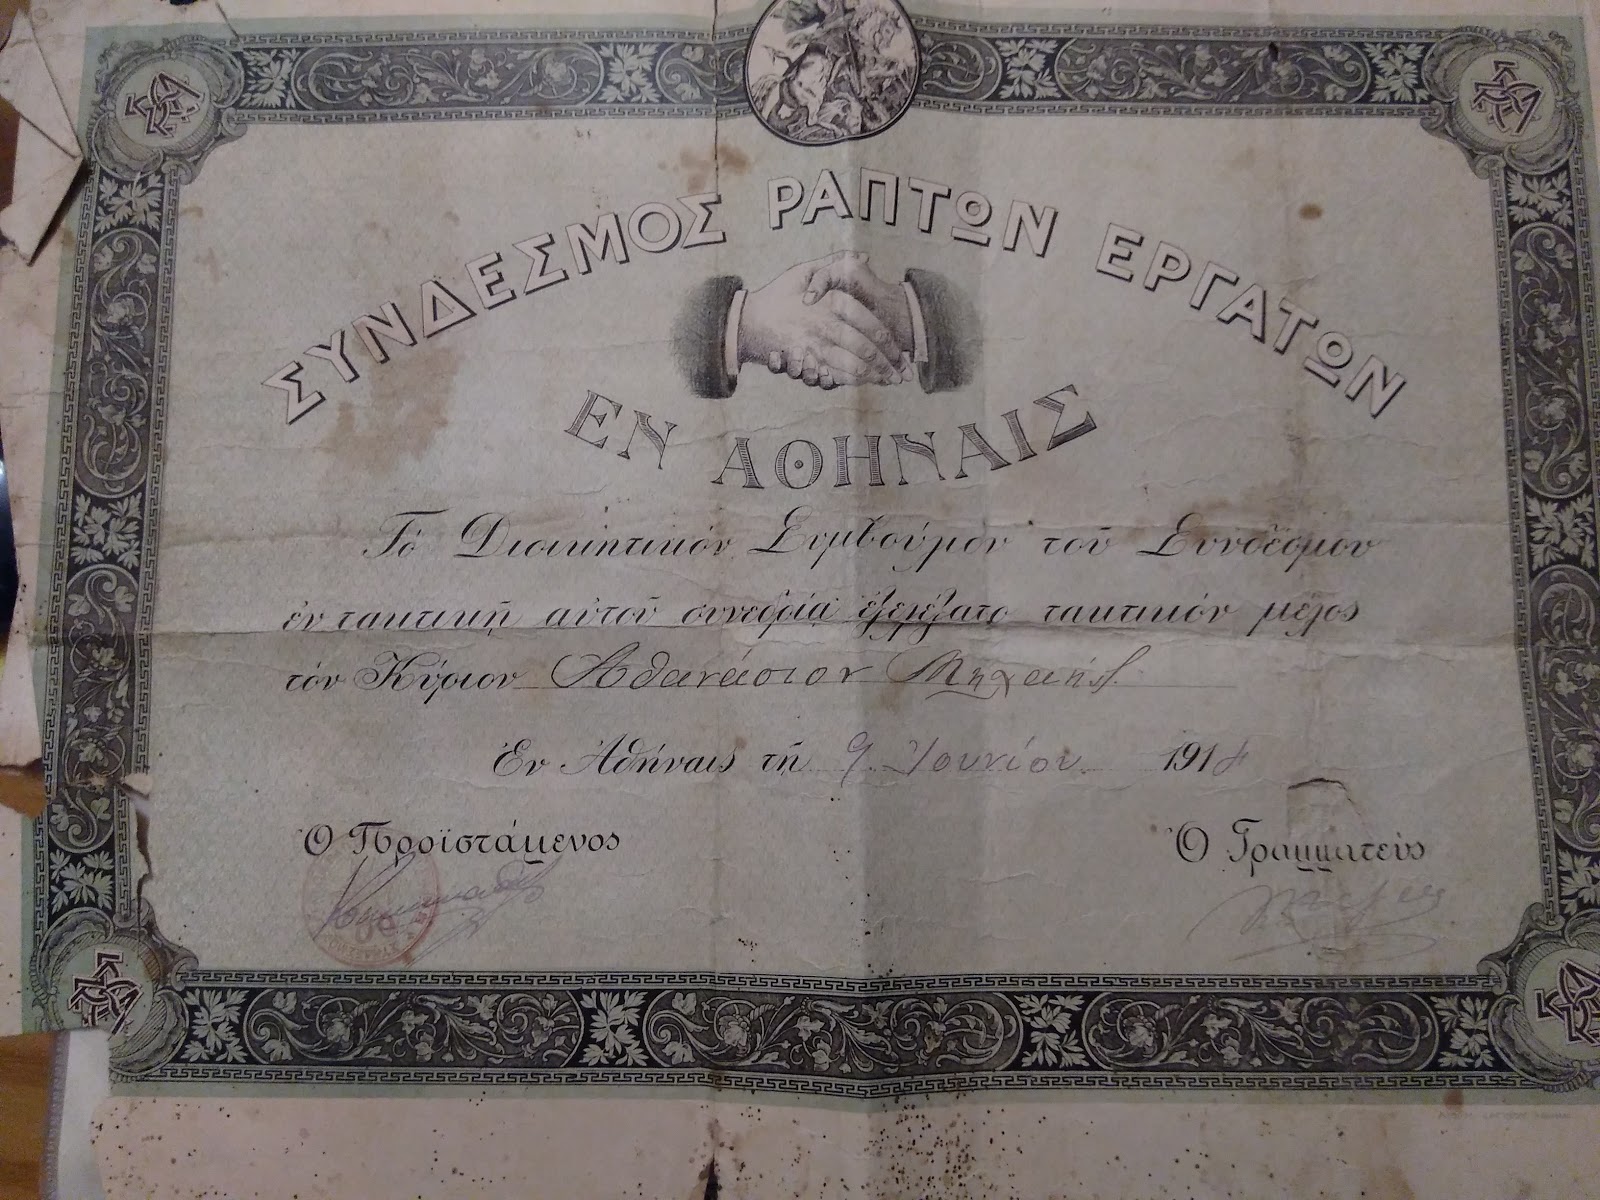 ΣΥΝΔΕΣΜΟΣ ΡΑΠΤΩΝ ΕΡΓΑΤΩΝ
ΕΝ ΑΘΗΝΑΙΣ
Τό Διοικητικόν Συμβούλιον τοῦ Συνδέσμου
ἐν τακτικῇ αὐτοῦ συνεδρίᾳ ἐξελέξατο τακτικόν μέλος
τόν Κύριον Ἀθανάσιον
Ἐν Ἀθήναις τῇ 9 Ἰουνίου 1914
Ὁ Προϊστάμενος
Ὁ Γραμματεύς